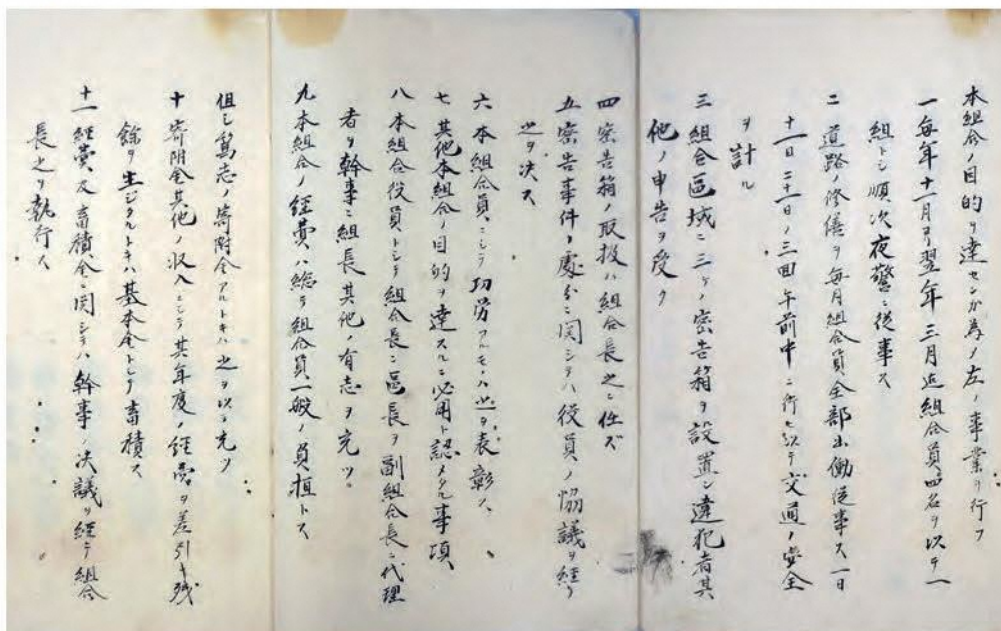 本組合ノ目的ヲ達センガ為メ左ノ事業ヲ行フ
一毎年十一月ヨリ翌年三月迄組合員四名ヲ以テ一
組トシ順次夜警ニ従事ス
二道路ノ修繕ヲ毎月組合員全部出働従事ス一日
十一日二十一日ノ三回午前中ニ行ヒ以テ交通ノ安全
ヲ計ル
三組合區域ニ三ケノ密告箱ヲ設置シ違犯者其
他ノ申告ヲ受ク
四密告箱ノ取扱ハ組合長之ニ任ズ
五密告事件ノ處分ニ関シテハ役員ノ協議ヲ経テ
之ヲ决ス
六本組合員ニシテ功労アルモノハ之ヲ表彰ス
七其他本組合ノ目的ヲ達スルニ必用ト認メタル事項
八本組合役員トシテ組合長ニ區長ヲ副組合長ニ代理
者ヲ幹事ニ組長其他ノ有志ヲ充ツ
九本組合ノ経費ハ総テ組合員一般ノ負担トス
但シ篤志ノ寄附金アルトキハ之ヲ以テ充ツ
十寄附金其他ノ収入ニシテ其年度ノ経費ヲ差引キ残
餘ヲ生ジタルトキハ基本金トシテ畜積ス
十一経費及畜積金ニ関シテハ幹事ノ决議ヲ経テ組合
長之ヲ執行ス